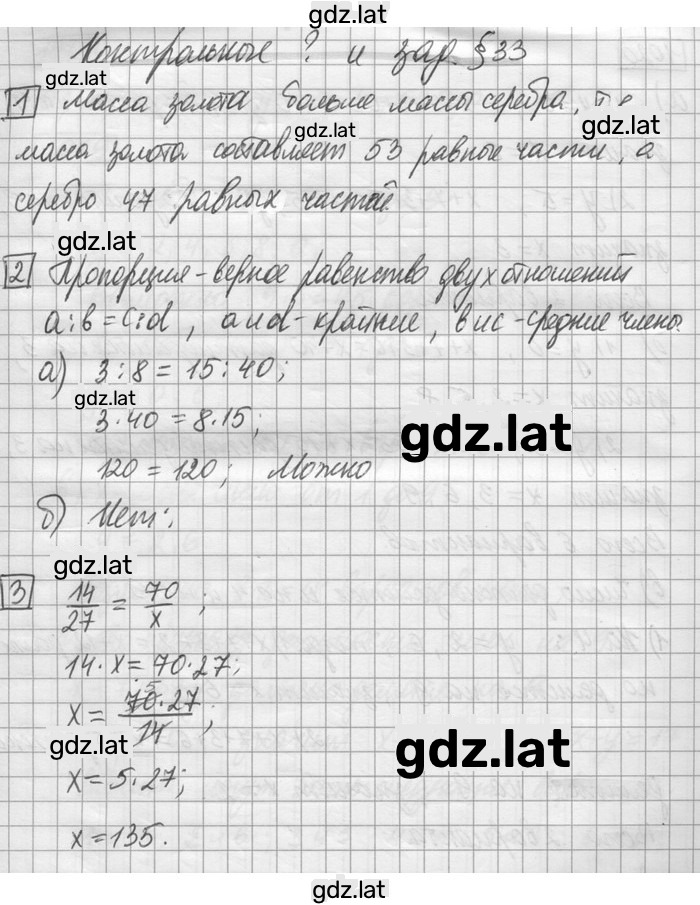 gdz.lat
Контрольные ? и зад. §33
gdz.lat
1 Масса золота больше массы серебра, т.к
gdz.lat
масса золота составляет 53 равные части, а
серебро 47 равных частей
gdz.lat
2 Пропорция - верное равенство двух отношений
a:b=c:d, a и d - крайние, b и c - средние члены.
а) 3:8 = 15:40;
gdz.lat
3·40 = 8·15;
gdz.lat
120 = 120; Можно
б) Нет;
gdz.lat
3 14/27 = 70/x;
14·x = 70·27;
x = 70·27/14;
5
gdz.lat
gdz.lat
x = 5·27;
x = 135.
gdz.lat